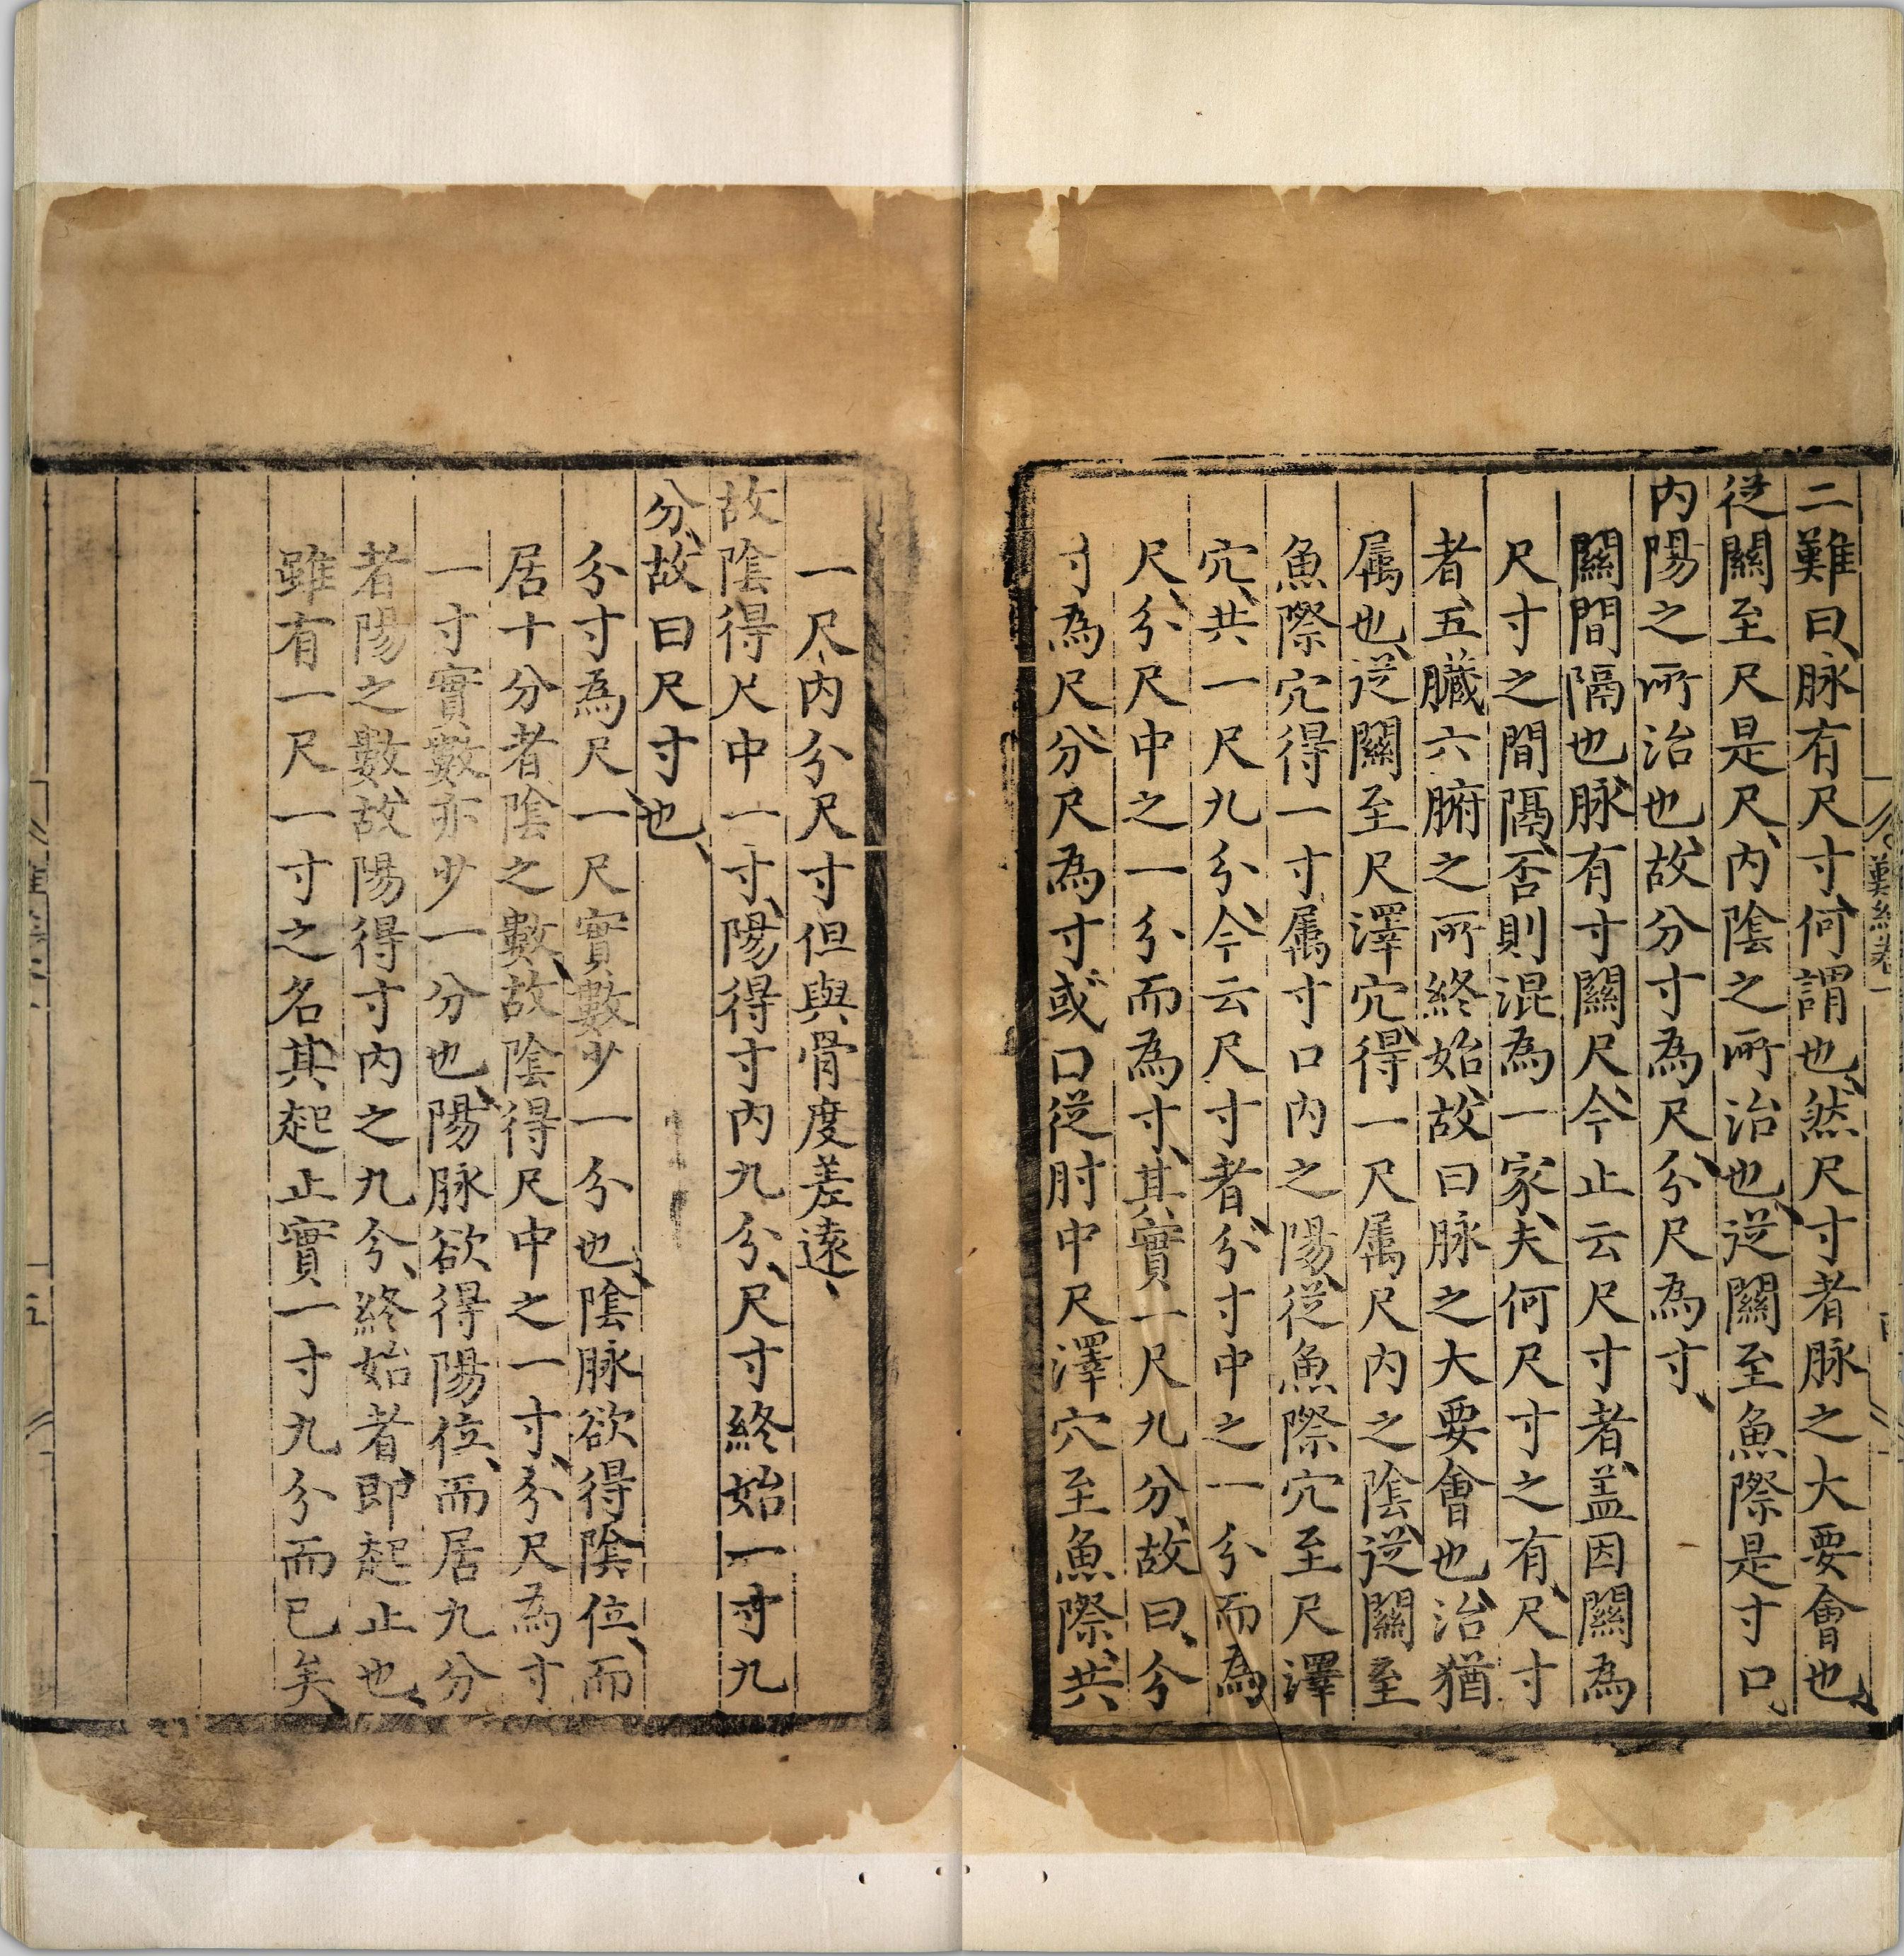 二難曰、脉有尺寸、何謂也、然尺寸者脉之大要會也、
從關至尺是尺、内陰之所治也、從關至魚際是寸口
内陽之所治也、故分寸為尺、分尺為寸、
關間隔也、脉有寸關尺、今止云尺寸者、盖因關為
尺寸之間隔、否則混為一家、夫何尺寸之有、尺寸
者、五臓六腑之所終始、故曰脉之大要會也、治猶
属也、從關至尺澤穴、得一尺属尺内之陰、從關至
魚際穴得一寸属寸口内之陽、從魚際穴至尺澤
穴、共一尺九分、今云尺寸者、分寸中之一分而為
尺、分尺中之一分而為寸、其實一尺九分、故曰、分
寸為尺、分尺為寸、或口從肘中尺澤穴至魚際、共
難經卷一
一尺、内分尺寸但與骨度差遠、
故陰得尺中一寸、陽得寸内九分、尺寸終始一寸九
分、故曰尺寸也、
分寸為尺、一尺實數少一分也、陰脉欲得陰位、而
居十分者、陰之數、故陰得尺中之一寸、分尺為寸
一寸實數亦少一分也、陽脉欲得陽位、而居九分
者、陽之數、故陽得寸内之九分、終始者、即起止也、
雖有一尺一寸之名、其起止實一寸九分而已矣、
五